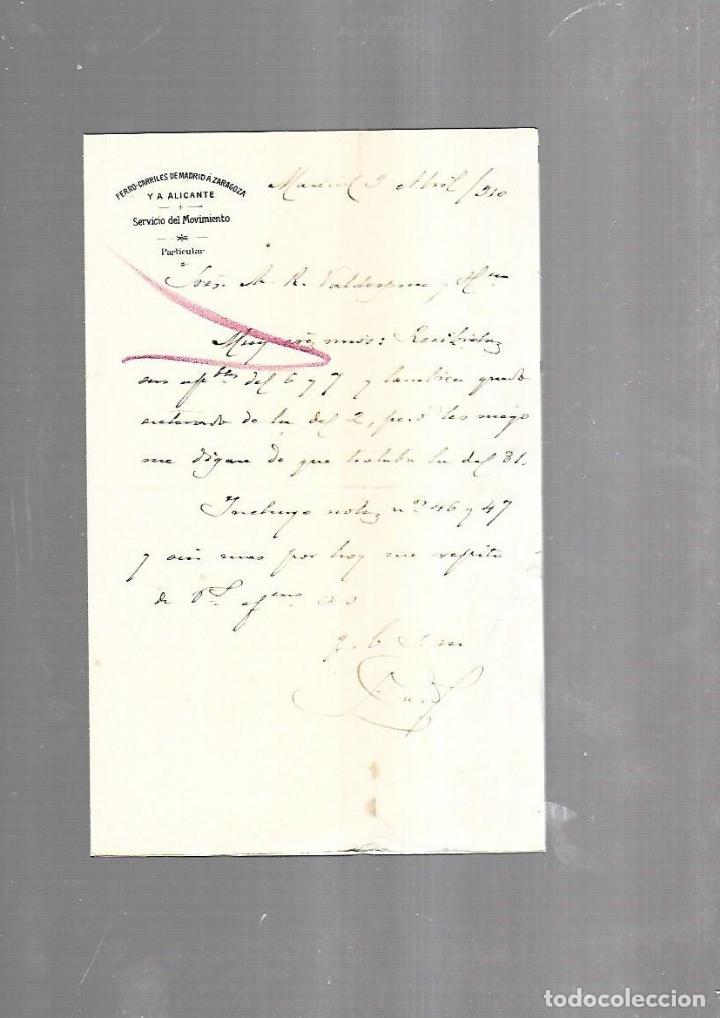 FERRO-CARRILES DE MADRID Á ZARAGOZA
Y A ALICANTE
Servicio del Movimiento
Particular
Madrid 9 Abril/910
Sres. A. R. Valdespino y Hno
Muy sres mios: Recibidas
sus del 6 y 7 y tambien quedo
enterado de la del 2, pero les ruego
me digan de que trataba la del 31.
Incluyo notas nos 46 y 47
y sin mas por hoy me repito
de Vs.
q. b. s. m
todocoleccion
todocoleccion.net